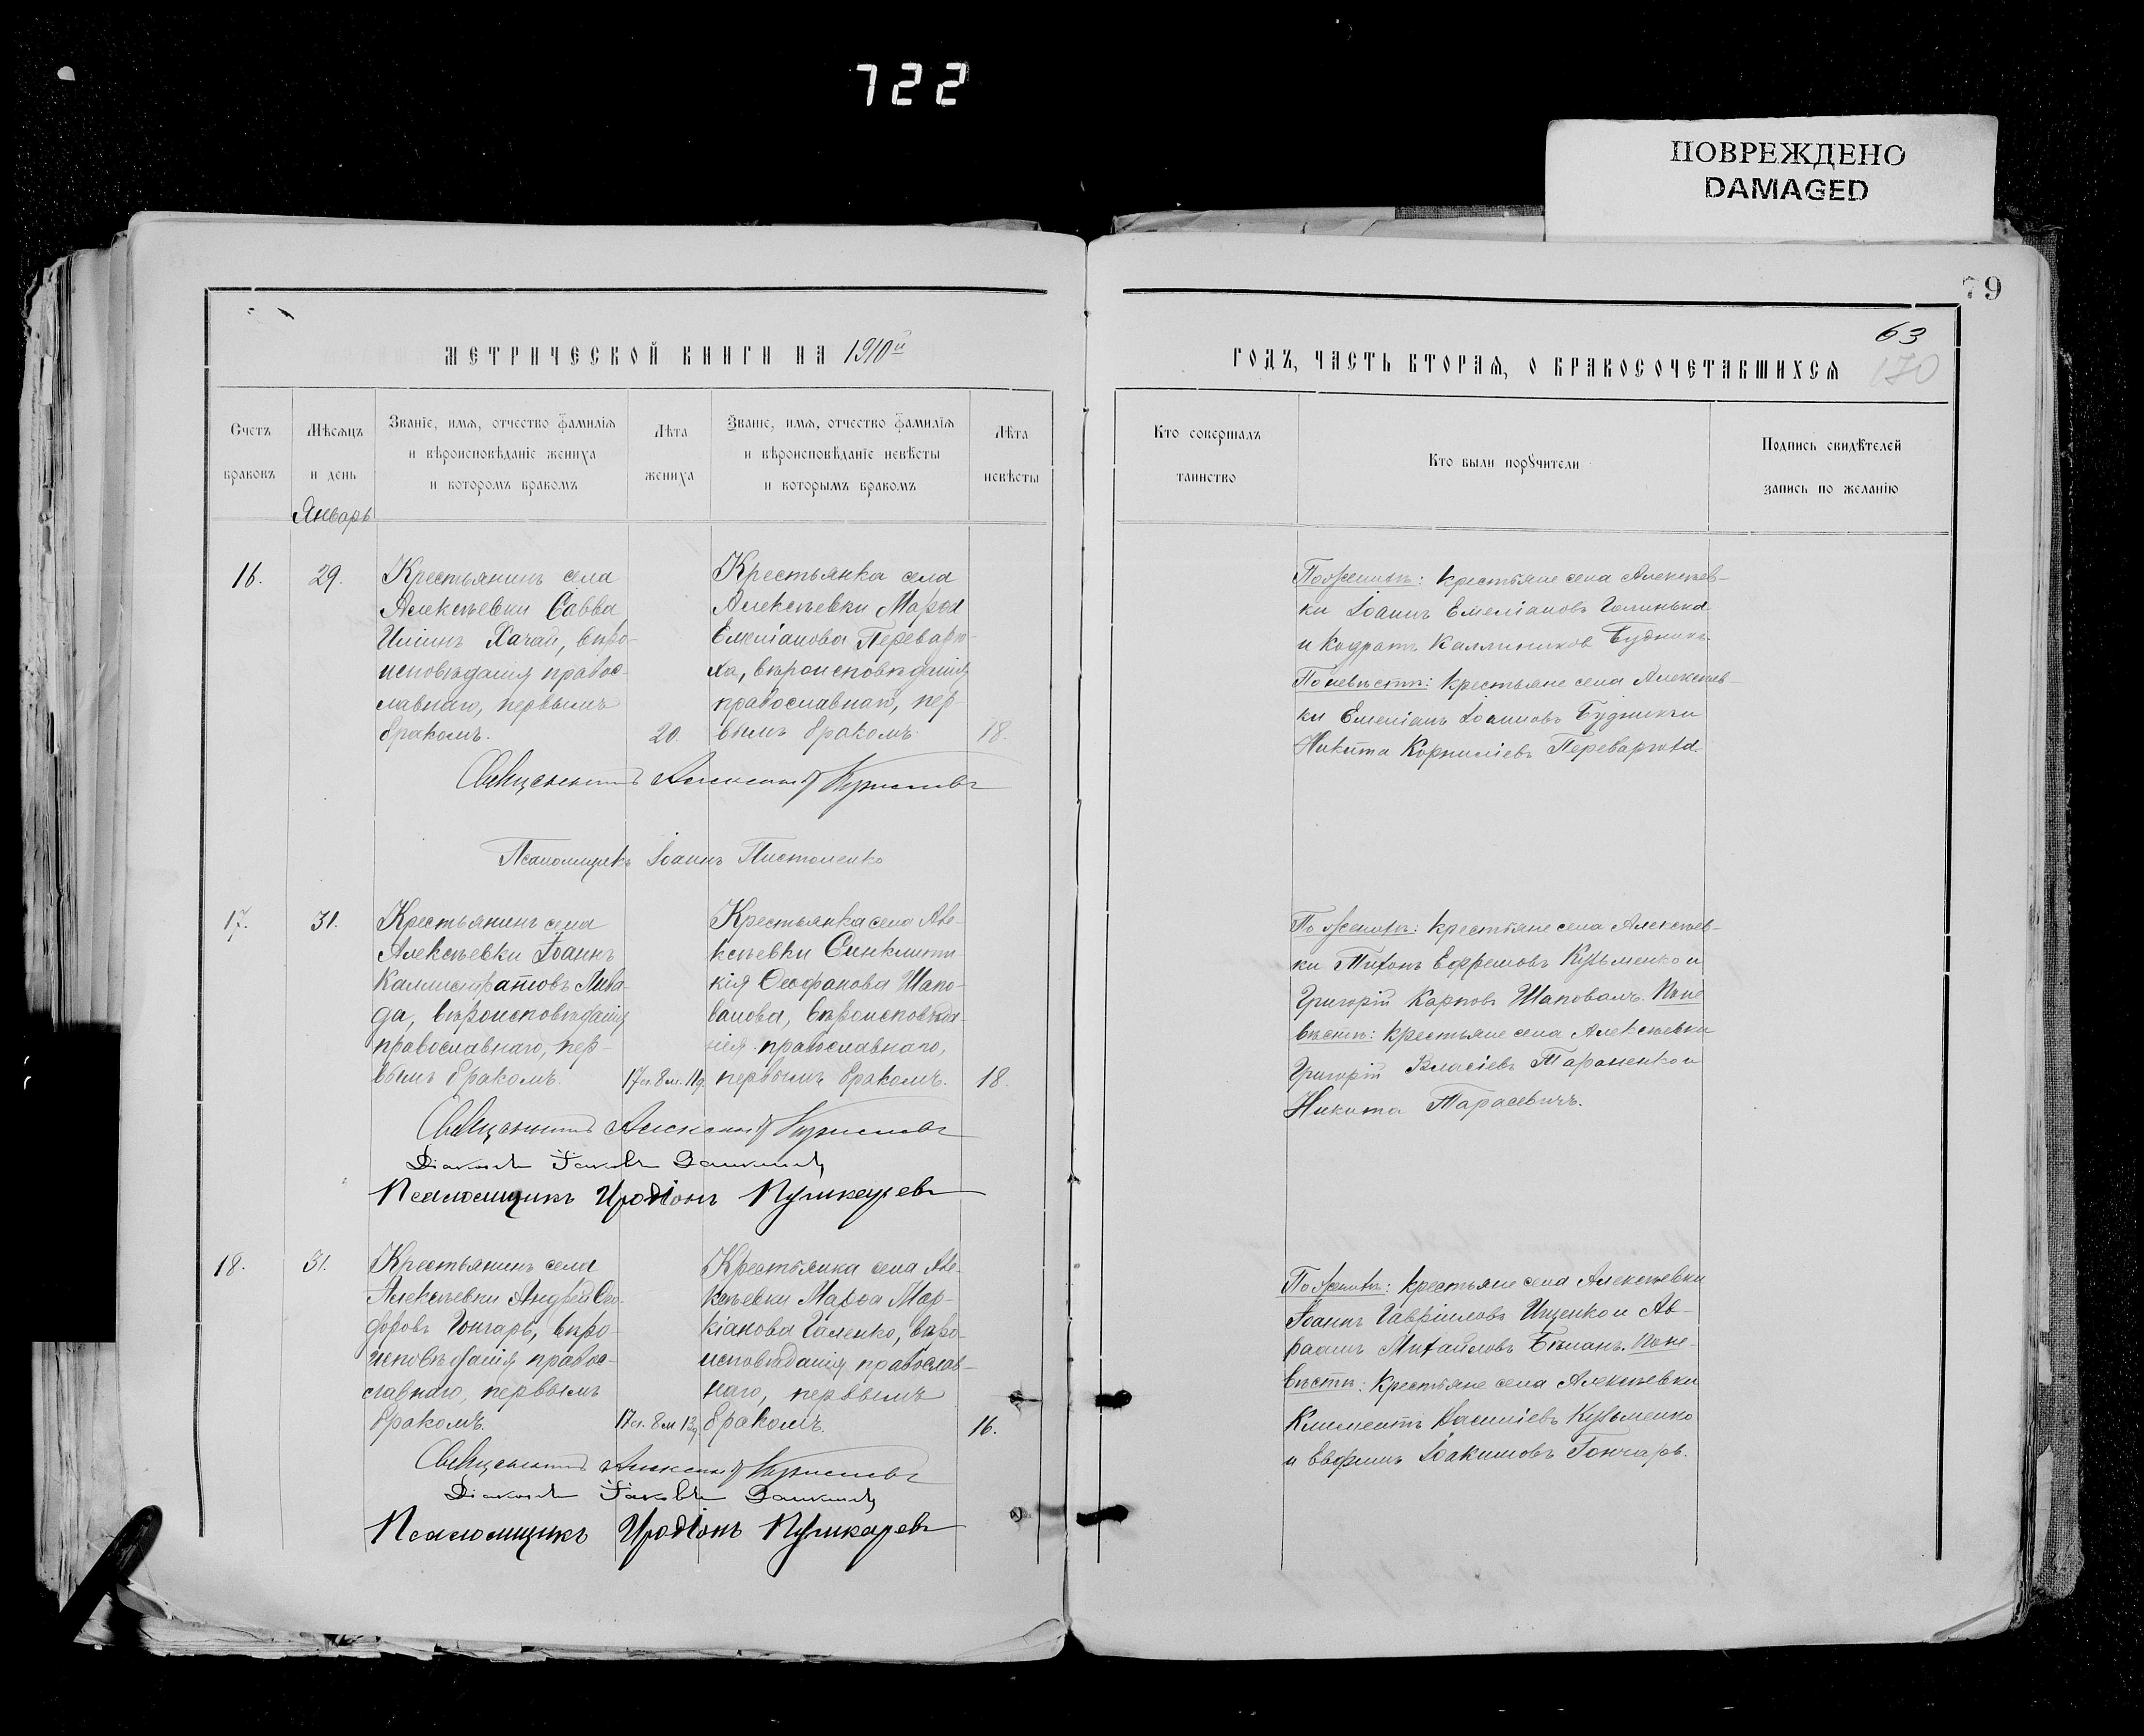 722
ПОВРЕЖДЕНО
DAMAGED
79
63
170
МЕТРИЧЕСКОЙ КНИГИ НА 1910й
ГОДЪ, ЧАСТЬ ВТОРАЯ, О БРАКОСОЧЕТАВШИХСЯ
Счетъ
браковъ
Мѣсяцъ
и день
Январь
Званіе, имя, отчество фамилія
и вѣроисповѣданіе жениха
и которомъ бракомъ
Лѣта
жениха
Званіе, имя, отчество фамилія
и вѣроисповѣданіе невѣсты
и которымъ бракомъ
Лѣта
невѣсты
Кто совершалъ
таинство
Кто были поручители
Подпись свидѣтелей
запись по желанію
16.
29.
Крестьянинъ села
Алексѣевки Савва
Иліинъ Хачай, вѣро-
исповѣданія правос-
лавнаго, первымъ
бракомъ.
20.
Крестьянка села
Алексѣевки Марѳа
Емеліанова Перевар-
ха, вѣроисповѣданія
православнаго, пер-
вымъ бракомъ.
18.
По женихѣ: крестьяне села Алексѣев-
ки Іоаннъ Емеліановъ Галинька
и Кодратъ Каллиников Будникъ.
По невѣстѣ: крестьяне села Алексѣев-
ки Емеліанъ Іоанновъ Будникъ и
Никита Корниліевъ Переварюха.
Священникъ Александр
Псаломщикъ Іоаннъ Пистоленко
17.
31.
Крестьянинъ села
Алексѣевки Іоаннъ
Каллистратовъ Лива-
да, вѣроисповѣданія
православнаго, пер-
вымъ бракомъ.
17л. 8м. 11д.
Крестьянка села Але-
ксѣевки Синклити-
кія Ѳеофанова Шапо-
валова, вѣроисповѣда-
нія православнаго,
первымъ бракомъ.
18.
По женихѣ: крестьяне села Алексѣев-
ки Тихонъ Ефремовъ Кузьменко и
Григорій Карповъ Шаповалъ. По не-
вѣстѣ: крестьяне села Алексѣевки
Григорій Власіевъ Тараненко и
Никита Тарасевичъ.
Священникъ Александр
Діаконъ Іаковъ
Псаломщикъ Иродіонъ Пушкаревъ
18.
31.
Крестьянинъ села
Алексѣевки Андрей Ѳео-
доровъ Гончаръ, вѣро-
исповѣданія правос-
славнаго, первымъ
бракомъ.
17л. 8м 13д
Крестьянка села Але-
ксѣевки Марѳа Мар-
кіанова Галенко, вѣро-
исповѣданія православ-
наго, первымъ
бракомъ.
16.
По женихѣ: крестьяне села Алексѣевки
Іоаннъ Гавріиловъ Ищенко и Ав-
раамъ Михайловъ Бѣланъ. По не-
вѣстѣ: крестьяне села Алексѣевки
Климентъ Василіевъ Кузьменко
и Евфимъ Іоакимовъ Гончаръ.
Священникъ Александр
Діаконъ Іаковъ
Псаломщикъ Иродіонъ Пушкаревъ